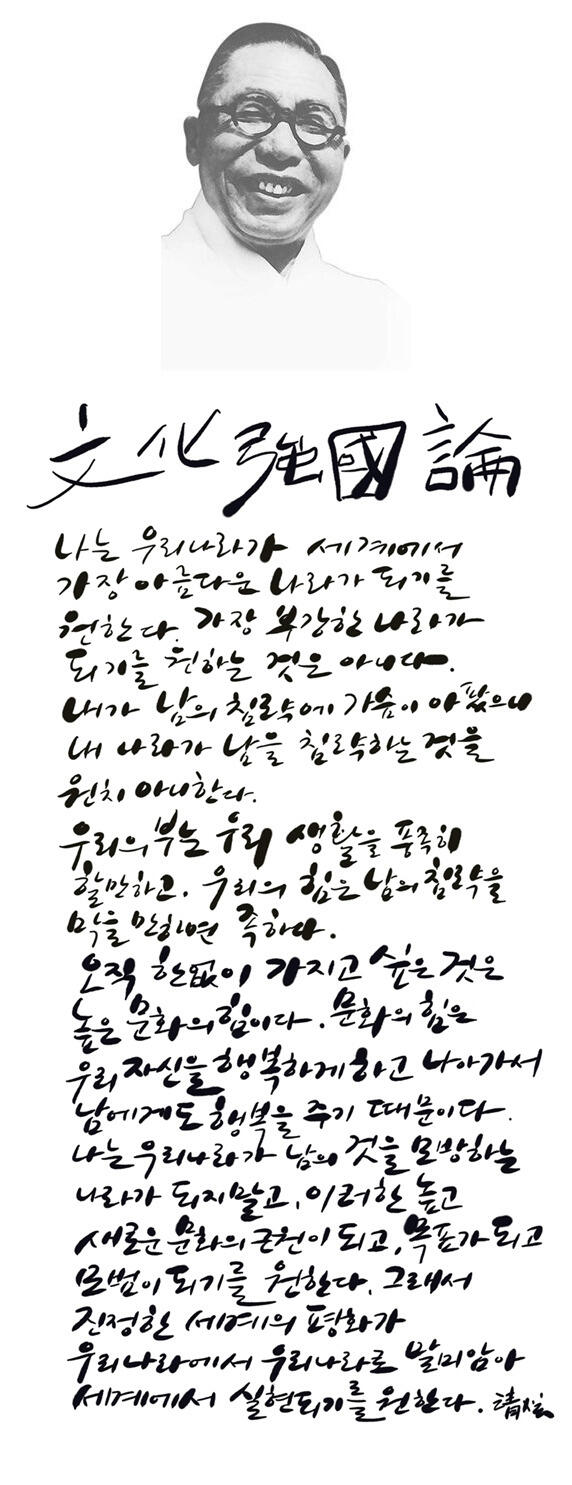 文化强國論
나는 우리나라가 세계에서
가장 아름다운 나라가 되기를
원한다. 가장 부강한 나라가
되기를 원하는 것은 아니다.
내가 남의 침략에 가슴이 아팠으니
내 나라가 남을 침략하는 것을
원치 아니한다.
우리의 부는 우리 생활을 풍족히
할만하고. 우리의 힘은 남의 침략을
막을 만하면 족하다.
오직 한없이 가지고 싶은 것은
높은 문화의 힘이다. 문화의 힘은
우리 자신을 행복하게 하고 나아가서
남에게도 행복을 주기 때문이다.
나는 우리나라가 남의 것을 모방하는
나라가 되지말고, 이러한 높고
새로운 문화의 근원이 되고, 목표가 되고
모범이 되기를 원한다. 그래서
진정한 세계의 평화가
우리나라에서 우리나라로 말미암아
세계에서 실현되기를 원한다.